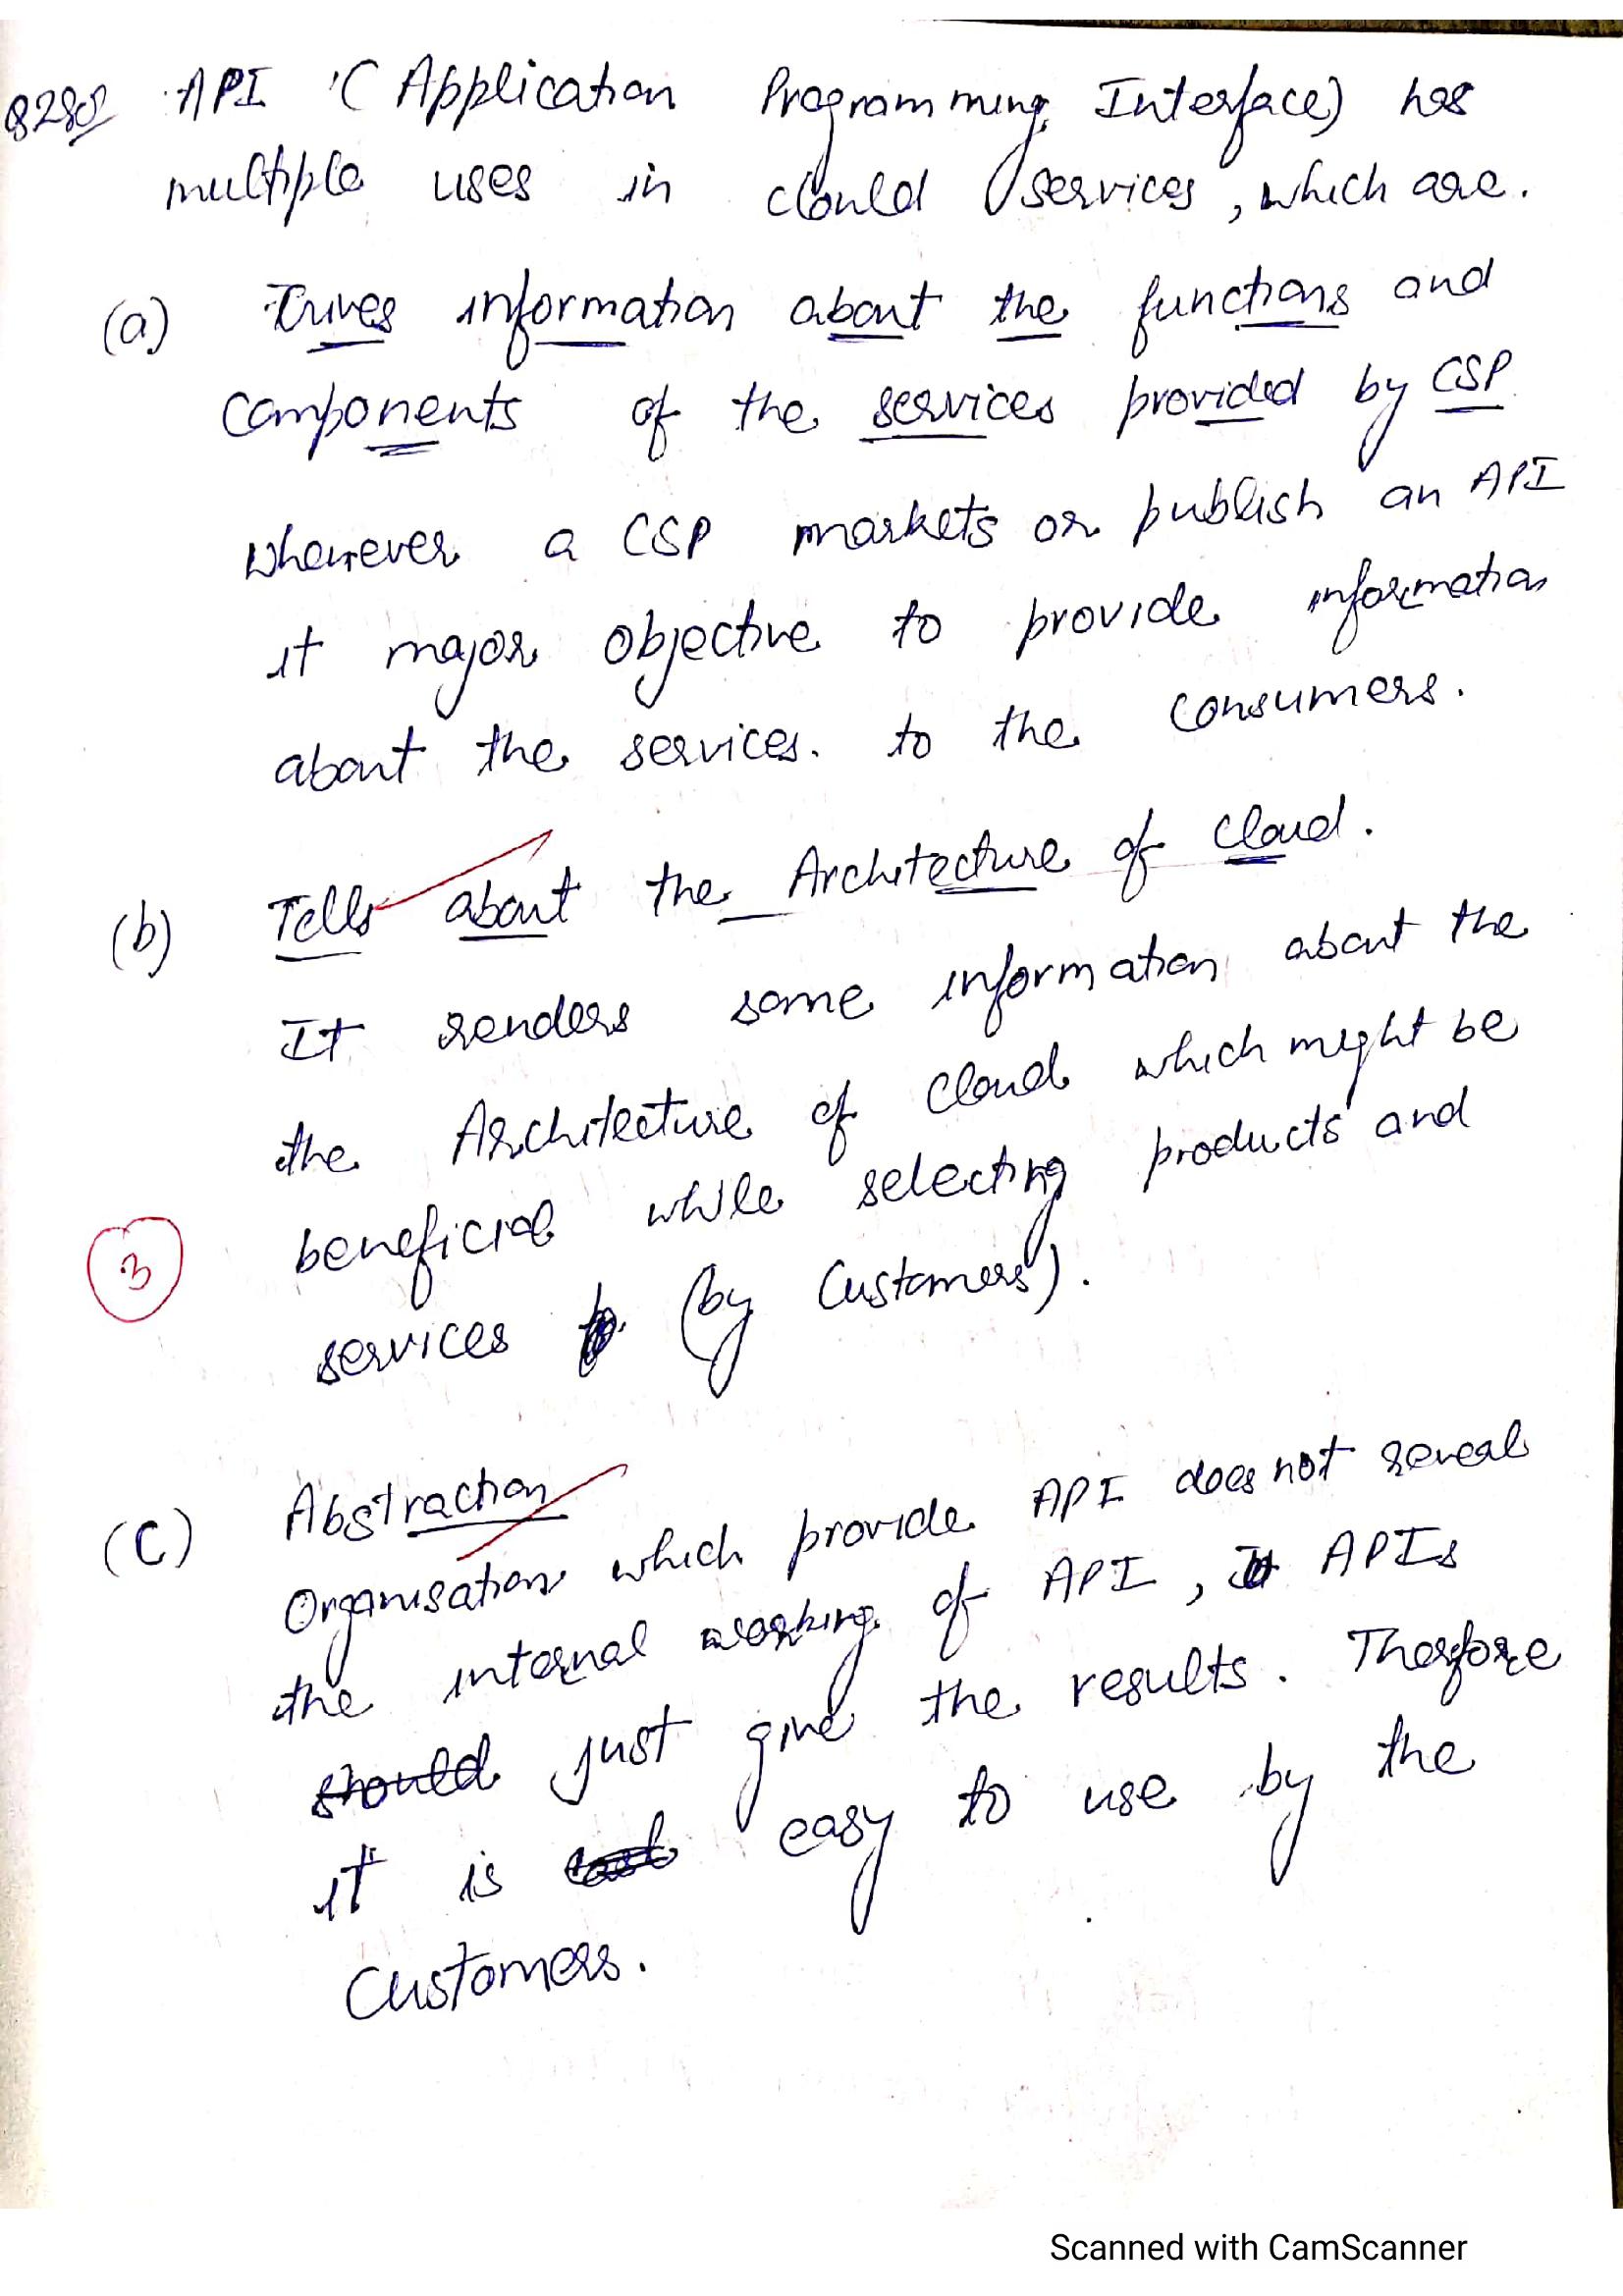 API (Application Programming Interface) has
multiple uses in clould services, which are.
(a) Gives information about the functions and
components of the services provided by CSP
Whenever a CSP markets or publish an API
it major objective to provide information
about the services. to the consumers.
(b) Tells about the Architecture of cloud.
It renders some information about the
the Architecture of cloud which might be
beneficial while selecting products and
3
services (by Customers).
(C) Abstraction
Organisation which provide API does not reveal
the internal working of API, APIs
should just give the results. Therfore
it is easy to use by the
Customers.
Scanned with CamScanner